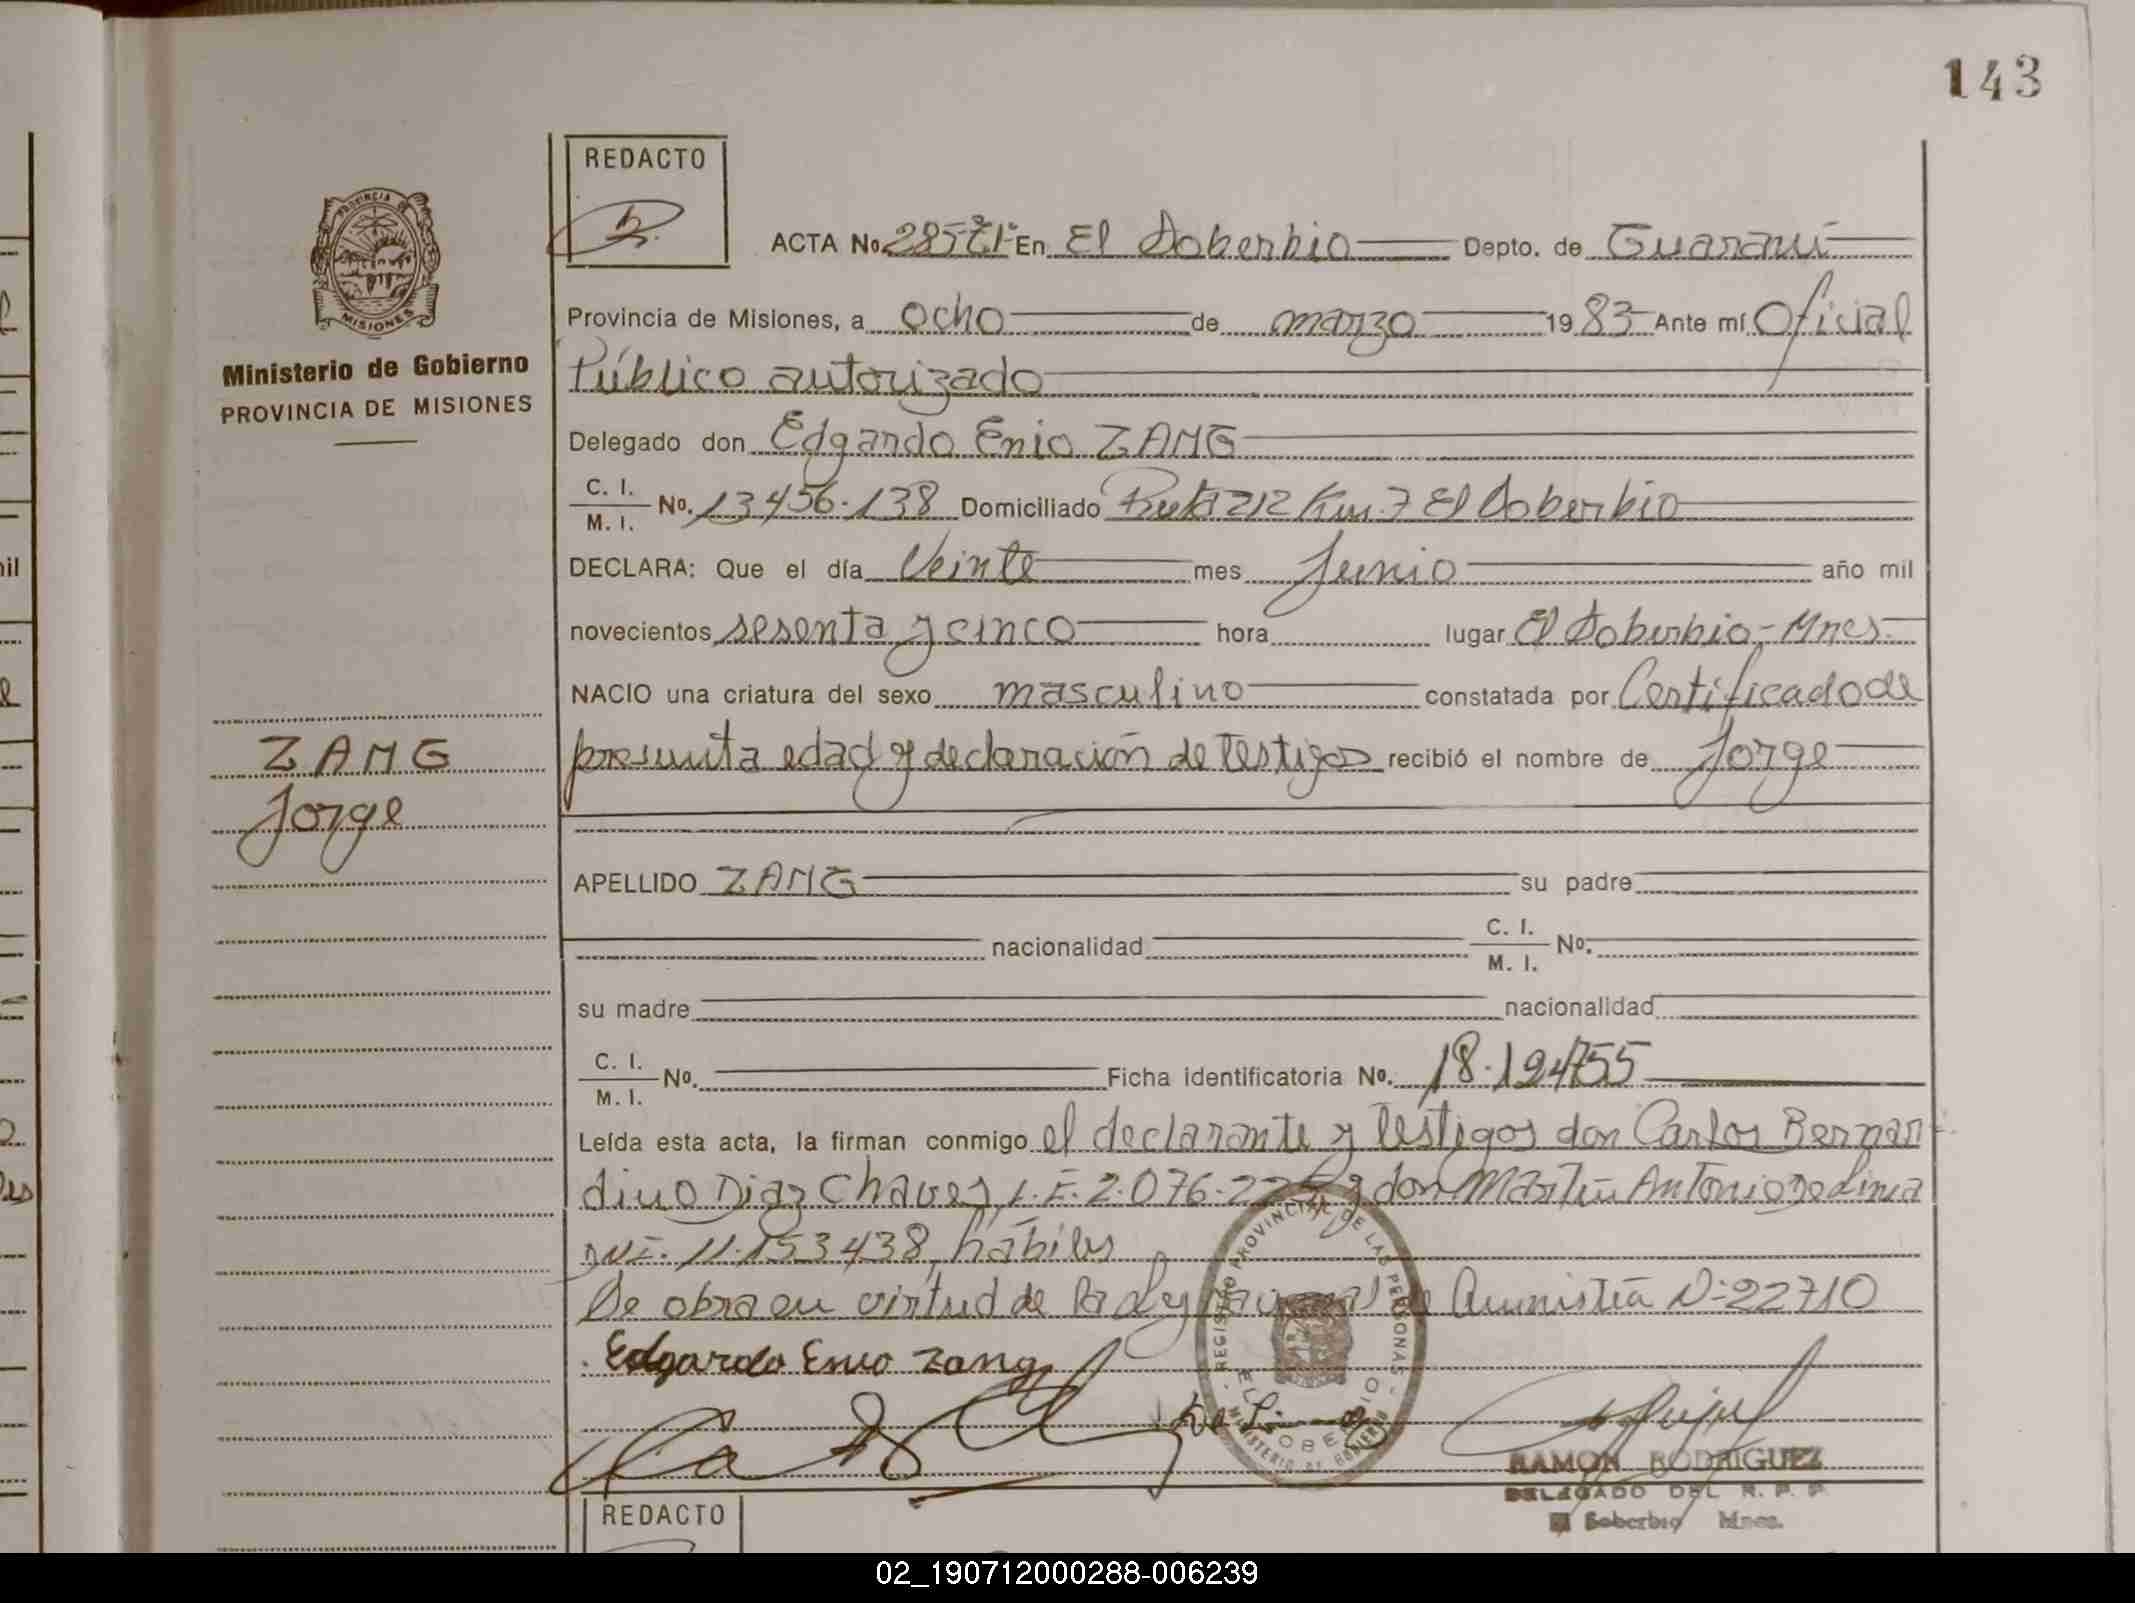 143
REDACTO
ACTA No. 285 En El Soberbio Depto. de Guaraní
Provincia de Misiones, a ocho de marzo 1983 Ante mí Oficial
Público autorizado
Delegado don Edgardo Enio ZANG
C. I.
M. I. No. 13456.138 Domiciliado Ruta 212 Km. 7 El Soberbio
DECLARA: Que el día Veinte mes Junio año mil
novecientos sesenta y cinco hora lugar El Soberbio-Mnes.
NACIO una criatura del sexo masculino constatada por Certificado de
presunta edad y declaración de Testigos recibió el nombre de Jorge
APELLIDO ZANG su padre
nacionalidad C. I.
M. I. No.
su madre nacionalidad
C. I.
M. I. No. Ficha identificatoria No. 18.194755
Leída esta acta, la firman conmigo el declarante y Testigos don Carlos Bernar
dino Diaz Chaves, L.E. 2.076.22 y don Martín Antonio de Lima
DNI. 11.153438, hábiles
Se obra en virtud de la Ley nacional de Amnistía N=22710
Edgardo Enio Zang
PROVINCIA DE
MISIONES
Ministerio de Gobierno
PROVINCIA DE MISIONES
ZANG
Jorge
REGISTRO PROVINCIAL DE LAS PERSONAS
EL SOBERBIO
MINISTERIO DE GOBIERNO
RAMON RODRIGUEZ
DELEGADO DEL R. P. P.
El Soberbio Mnes.
REDACTO
02_190712000288-006239